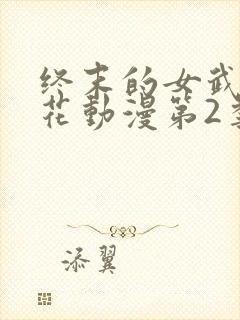 终末的女武
花動漫第2季
添翼